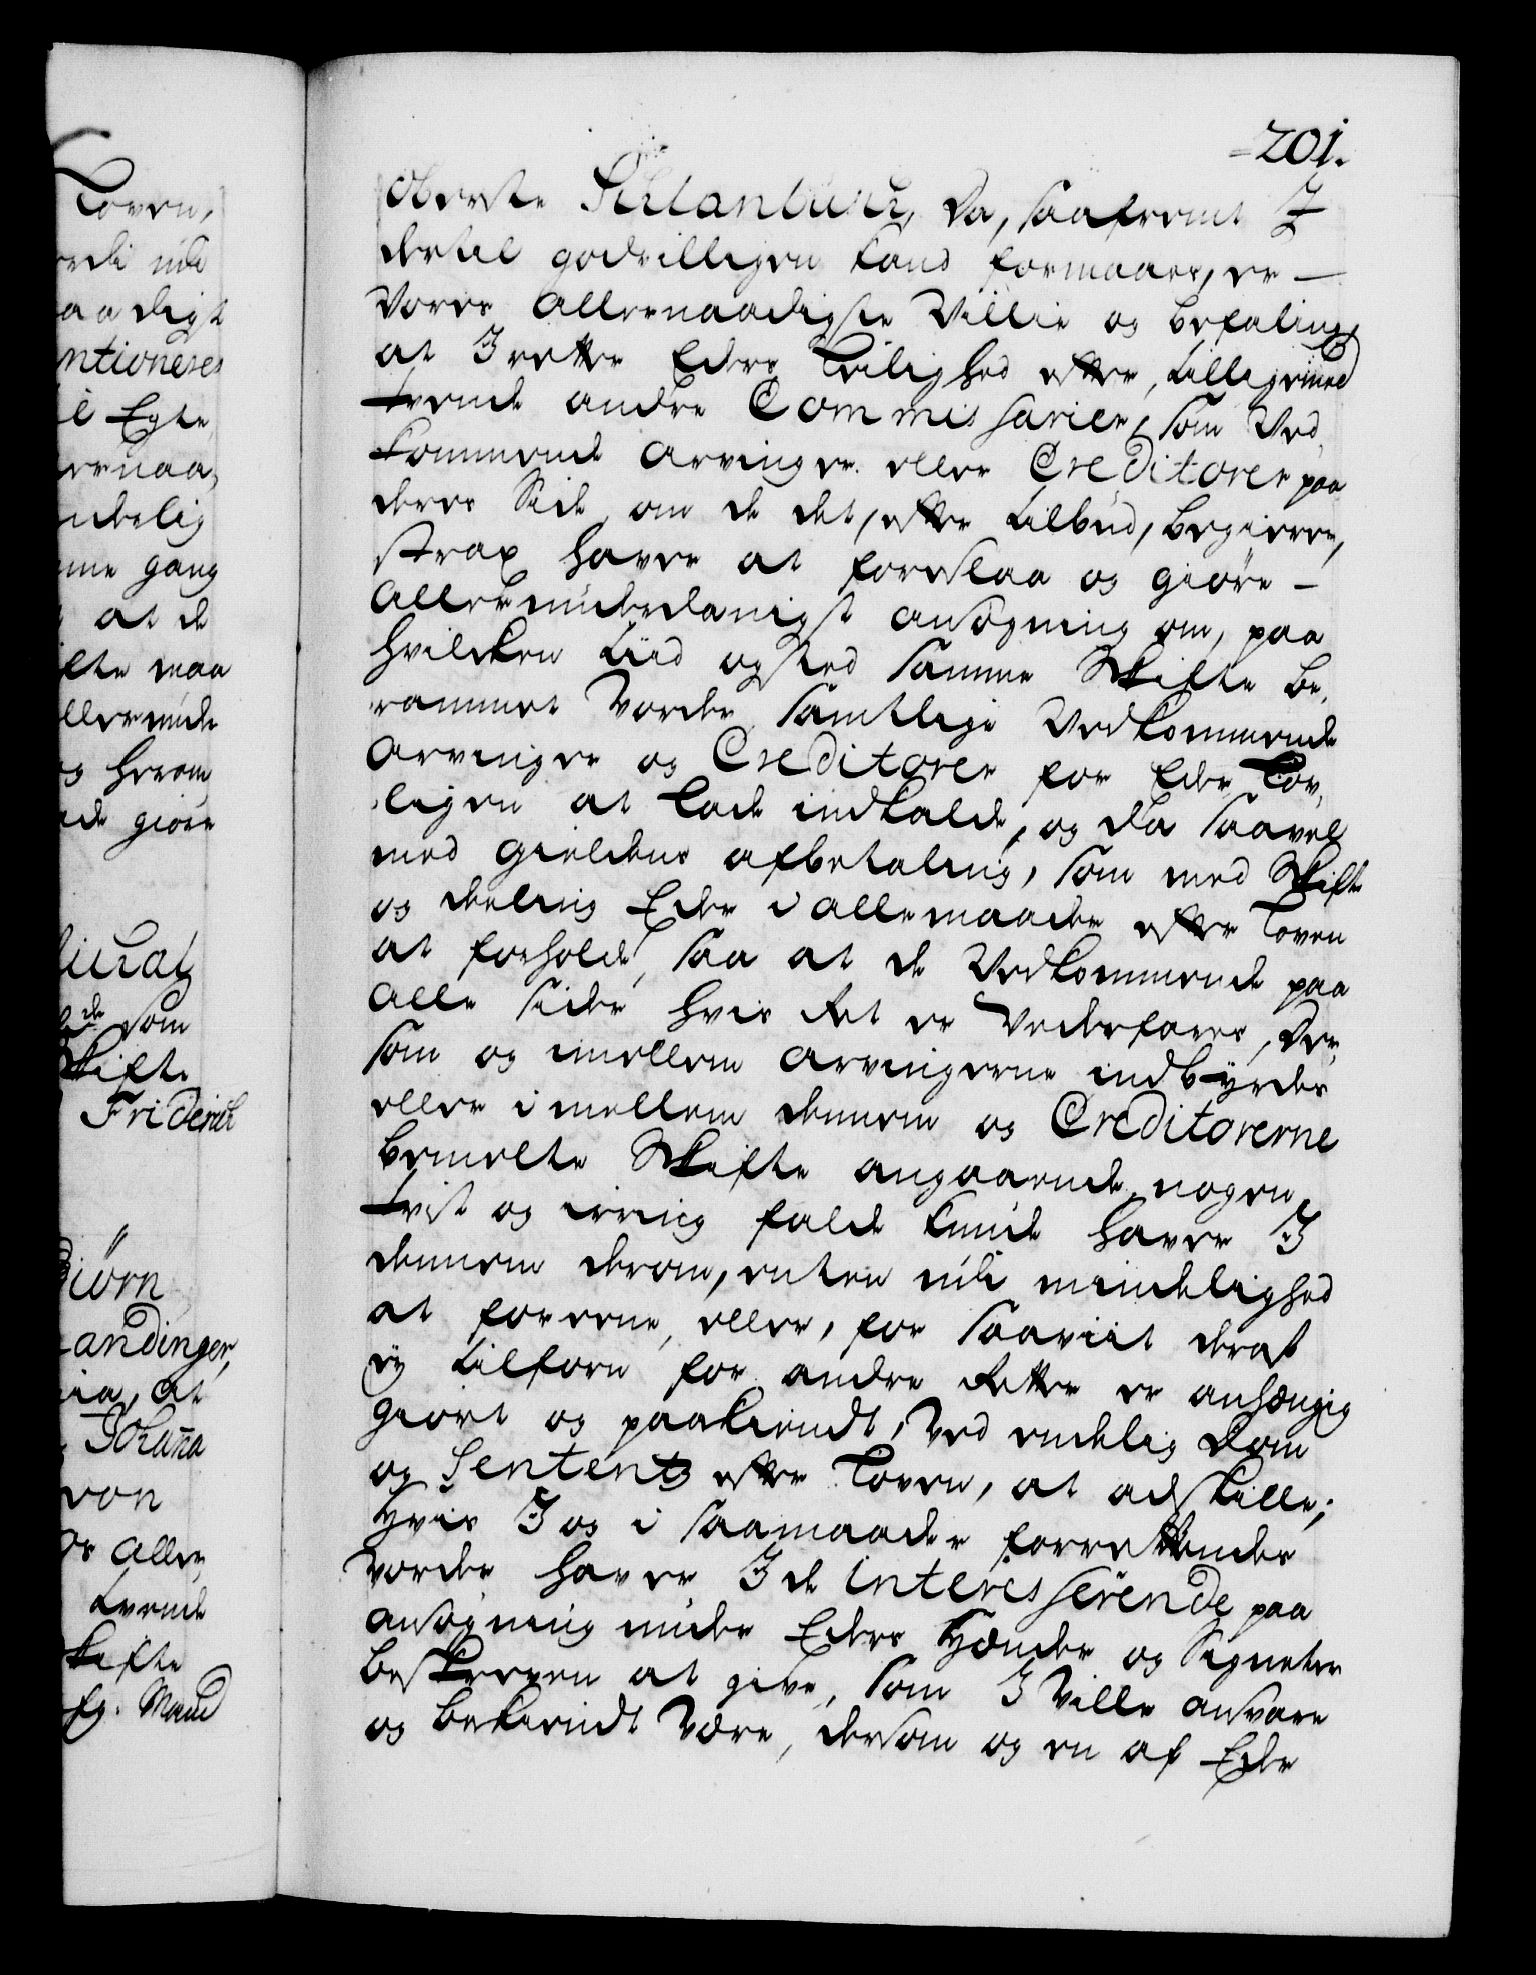 201.
Oberste Schlanbusch, da, saafremt I
dertil godvilligen kand formaaes, er
Vores allernaadigste Villie og befaling,
at I rette Eders Leilighed efter, tilligemed
tvende andre Commissarier, som Ved,
kommende Arvinger eller Creditorer paa
deres Side, om de det, efter tilbud, begierer,
strax haver at foreslaa og giøre
allerunderdanigst ansøgning om, paa
hvilcken tiid og sted samme Skifte be,
rammet vorder, samtlige Vedkommende
Arvinger og Creditorer for Eder Lov,
ligen at lade indkalde, og da saavel
med gieldens afbetaling, som med Skifte
og deeling Eder i alle maader efter Loven
at forholde, saa at de Vedkommende paa
alle sider hvis Ret er Vederfares, Der,
som og imellem Arvingerne indbyrdes
eller imellem dennem og Creditorerne
bemelte Skifte angaaende, nogen
tvist og irring falde kunde haver I
dennem derom, enten udi mindelighed
at foreene, eller, for saaviit deraf
ey tilforn for andre Retter er anhængig
giort og paakiendt, Ved endelig Dom
og Sententz efter Loven, at adskille;
Hvis I og i saamaader forrettendes
vorder haver I de interesserende paa
ansøgning under Eders Hænder og Signeter
beskreven at give, som I Ville ansvare
og bekiendt Være, dersom og en af Eder
Loven,
mtioneres
Egte
gang
at de
maa
herom
giøre
som
Skifte
Friderich
Johaña
von
aller
tvende
Skifte
Maud